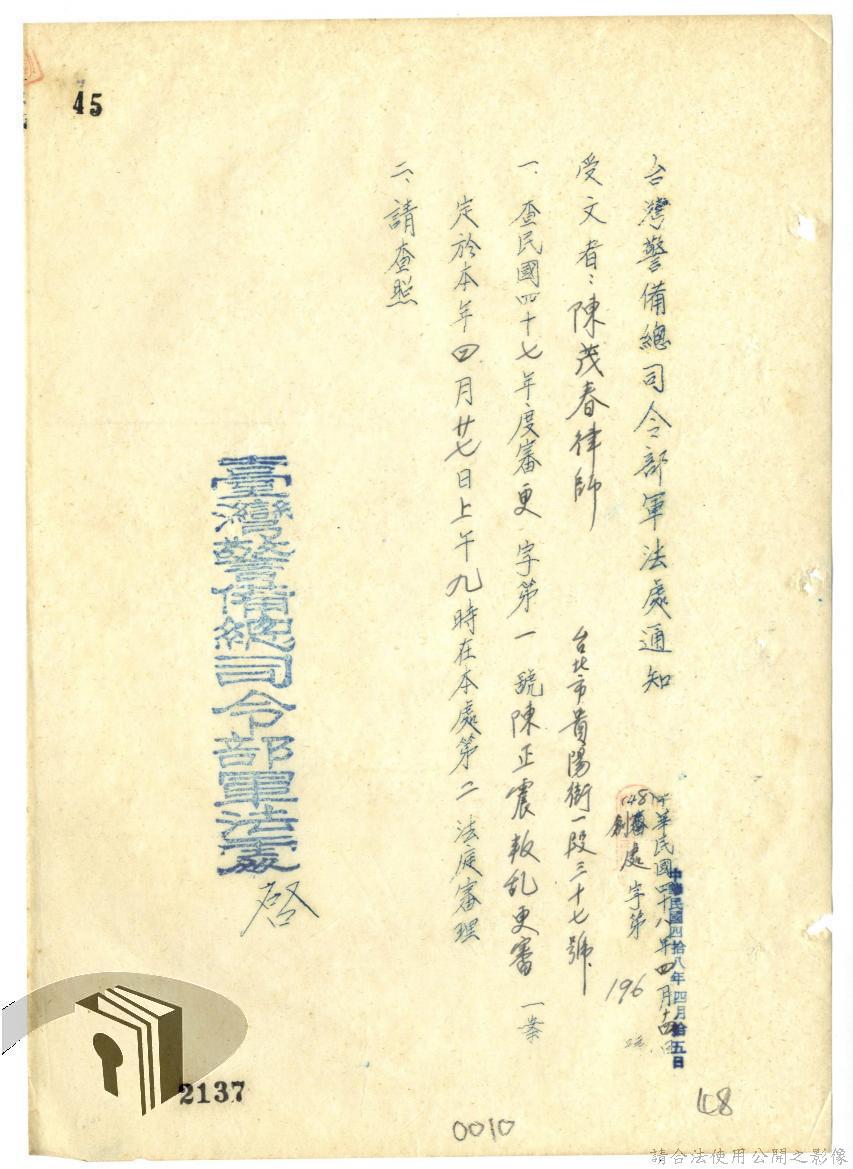 45
台灣警備總司令部軍法處通知
中華民國四十八年四月十四日
中華民國四拾八年四月拾五日
(48)審處字第
196
受文者：陳茂春律師 台北市貴陽街一段三十七號
一、查民國四十七年度審更字第一號陳正震叛乱更審一案
定於本年四月廿七日上午九時在本處第二法庭審理
二、請查照
臺灣警備總司令部軍法處
啓
2137
0010
48
請合法使用公開之影像